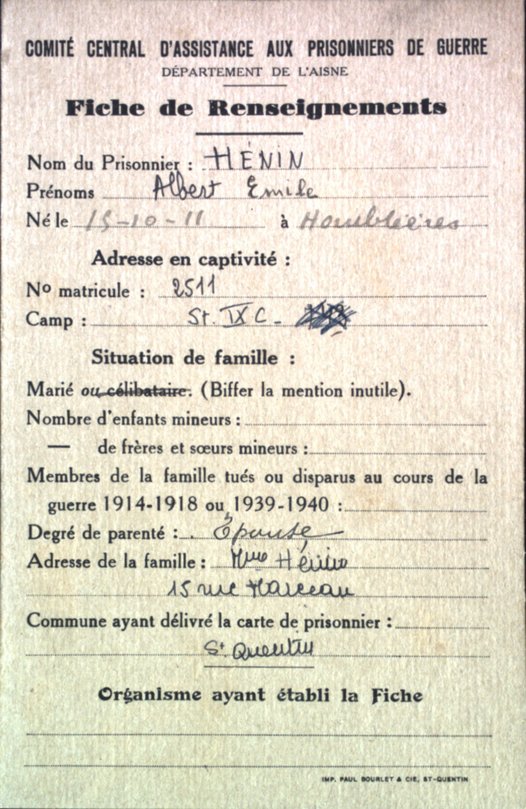 COMITÉ CENTRAL D'ASSISTANCE AUX PRISONNIERS DE GUERRE
DÉPARTEMENT DE L'AISNE
Fiche de Renseignements
Nom du Prisonnier : HÉNIN
Prénoms Albert Emile
Né le 15-10-11 à Homblières
Adresse en captivité :
No matricule : 2511
Camp : St. IX C -
Situation de famille :
Marié ou célibataire. (Biffer la mention inutile).
Nombre d'enfants mineurs :
— de frères et sœurs mineurs :
Membres de la famille tués ou disparus au cours de la
guerre 1914-1918 ou 1939-1940 :
Degré de parenté : Épouse
Adresse de la famille : Mme Hénin
15 rue Marceau
Commune ayant délivré la carte de prisonnier :
St. Quentin
Organisme ayant établi la Fiche
IMP. PAUL BOURLET & CIE, ST-QUENTIN